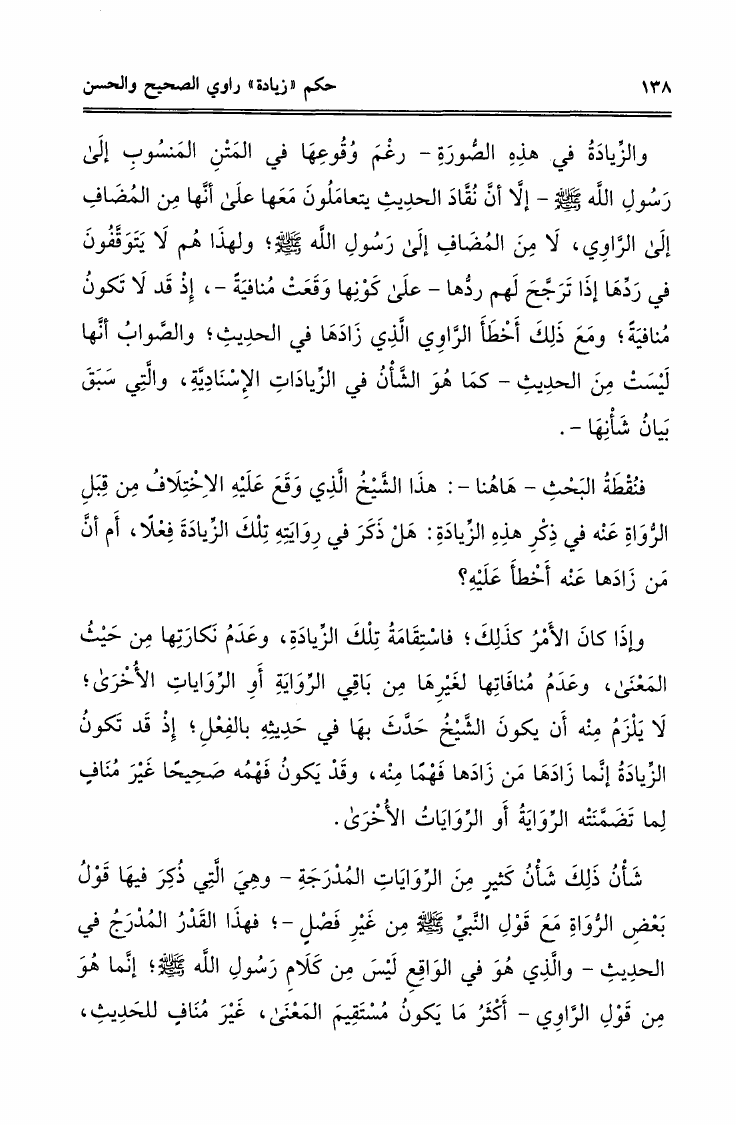 ١٣٨ حكم «زيادة» راوي الصحيح والحسن
والزِّيادَةُ في هذِهِ الصُّورَةِ - رغْمَ وُقُوعِهَا في المَتْنِ المَنسُوبِ إلَىٰ
رَسُولِ اللَّه ﷺ - إلَّا أنَّ نُقَّادَ الحديثِ يتعامَلُونَ مَعَها علَىٰ أنَّها مِن المُضَافِ
إلَىٰ الرَّاوِي، لَا مِنَ المُضَافِ إلَىٰ رَسُولِ اللَّه ﷺ؛ ولهذَا هُم لَا يَتَوَقَّفُونَ
في رَدِّهَا إذَا تَرَجَّحَ لَهم ردُّها - علَىٰ كَوْنِها وَقَعَتْ مُنافيَةً -، إذْ قَد لَا تَكونُ
مُنافيَةً؛ ومَعَ ذَلِكَ أَخْطَأَ الرَّاوِي الَّذِي زَادَهَا في الحديثِ؛ والصَّوابُ أنَّها
لَيْسَتْ مِنَ الحديثِ - كمَا هُوَ الشَّأْنُ في الزِّيادَاتِ الإِسْنَاديَّةِ، والَّتِي سَبَقَ
بَيانُ شَأْنِهَا -.
فنُقْطَةُ البَحْثِ - هَاهُنا -: هذَا الشَّيْخُ الَّذِي وَقَعَ عَلَيْهِ الاخْتِلَافُ مِن قِبَلِ
الرُّوَاةِ عَنْه في ذِكْرِ هذِهِ الزِّيادَةِ: هَلْ ذَكَرَ في رِوَايَتِهِ تِلْكَ الزِّيادَةَ فِعْلًا، أم أنَّ
مَن زَادَها عَنْه أَخْطأَ عَلَيْهِ؟
وإذَا كانَ الأَمْرُ كذَلِكَ؛ فاسْتِقَامَةُ تِلْكَ الزِّيادَةِ، وعَدَمُ نَكارَتِها مِن حَيْثُ
المَعْنَىٰ، وعَدَمُ مُنافَاتِها لغَيْرِهَا مِن بَاقِي الرِّوَايَةِ أَوِ الرِّوَاياتِ الأُخْرَىٰ؛
لَا يَلْزَمُ مِنْه أَن يكونَ الشَّيْخُ حَدَّثَ بهَا في حَدِيثِهِ بالفِعْلِ؛ إذْ قَد تَكونُ
الزِّيادَةُ إنَّما زَادَهَا مَن زَادَها فَهْمًا مِنْه، وقَدْ يَكونُ فَهْمُه صَحِيحًا غَيْرَ مُنَافٍ
لِما تَضَمَّنَتْه الرِّوَايَةُ أَو الرِّوَايَاتُ الأُخْرَىٰ.
شَأْنُ ذَلِكَ شَأْنُ كَثيرٍ مِنَ الرِّوَايَاتِ المُدْرَجَةِ - وهِيَ الَّتِي ذُكِرَ فيهَا قَوْلُ
بَعْضِ الرُّوَاةِ مَعَ قَوْلِ النَّبيِّ ﷺ مِن غَيْرِ فَصْلٍ -؛ فهذَا القَدْرُ المُدْرَجُ في
الحديثِ - والَّذِي هُوَ في الوَاقِعِ لَيْسَ مِن كَلَامِ رَسُولِ اللَّه ﷺ؛ إنَّما هُوَ
مِن قَوْلِ الرَّاوِي - أكْثَرُ مَا يَكونُ مُسْتَقِيمَ المَعْنَىٰ، غَيْرَ مُنَافٍ للحَدِيثِ،